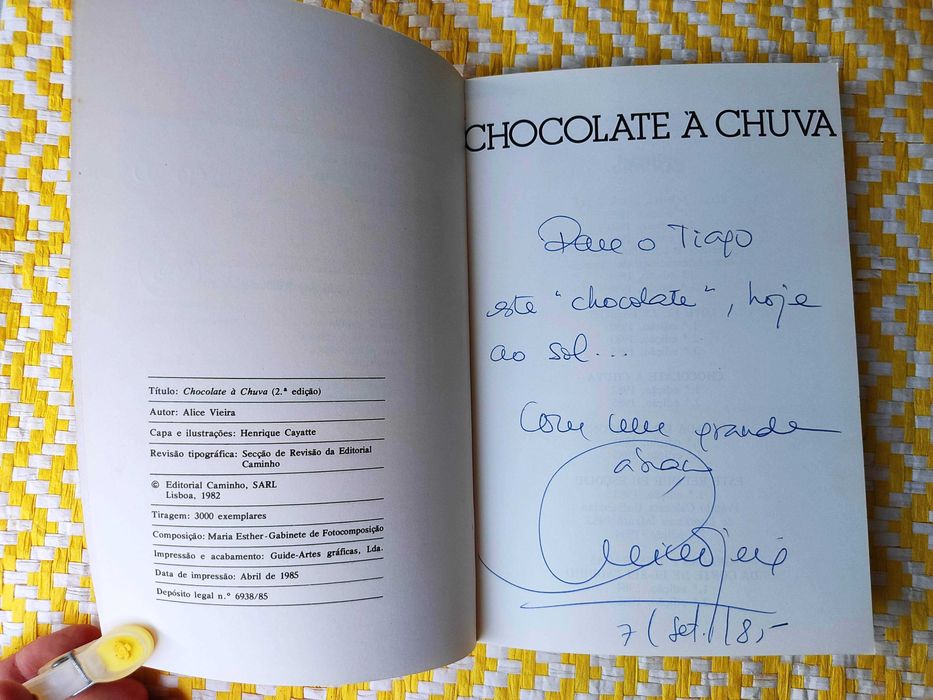 Título: Chocolate à Chuva (2.ª edição)
Autor: Alice Vieira
Capa e ilustrações: Henrique Cayatte
Revisão tipográfica: Secção de Revisão da Editorial
Caminho
© Editorial Caminho, SARL
Lisboa, 1982
Tiragem: 3000 exemplares
Composição: Maria Esther-Gabinete de Fotocomposição
Impressão e acabamento: Guide-Artes gráficas, Lda.
Data de impressão: Abril de 1985
Depósito legal n.º 6938/85
CHOCOLATE A CHUVA
Para o Tiago
este "chocolate", hoje
ao sol...
Com um grande
abraço
7 / set. /